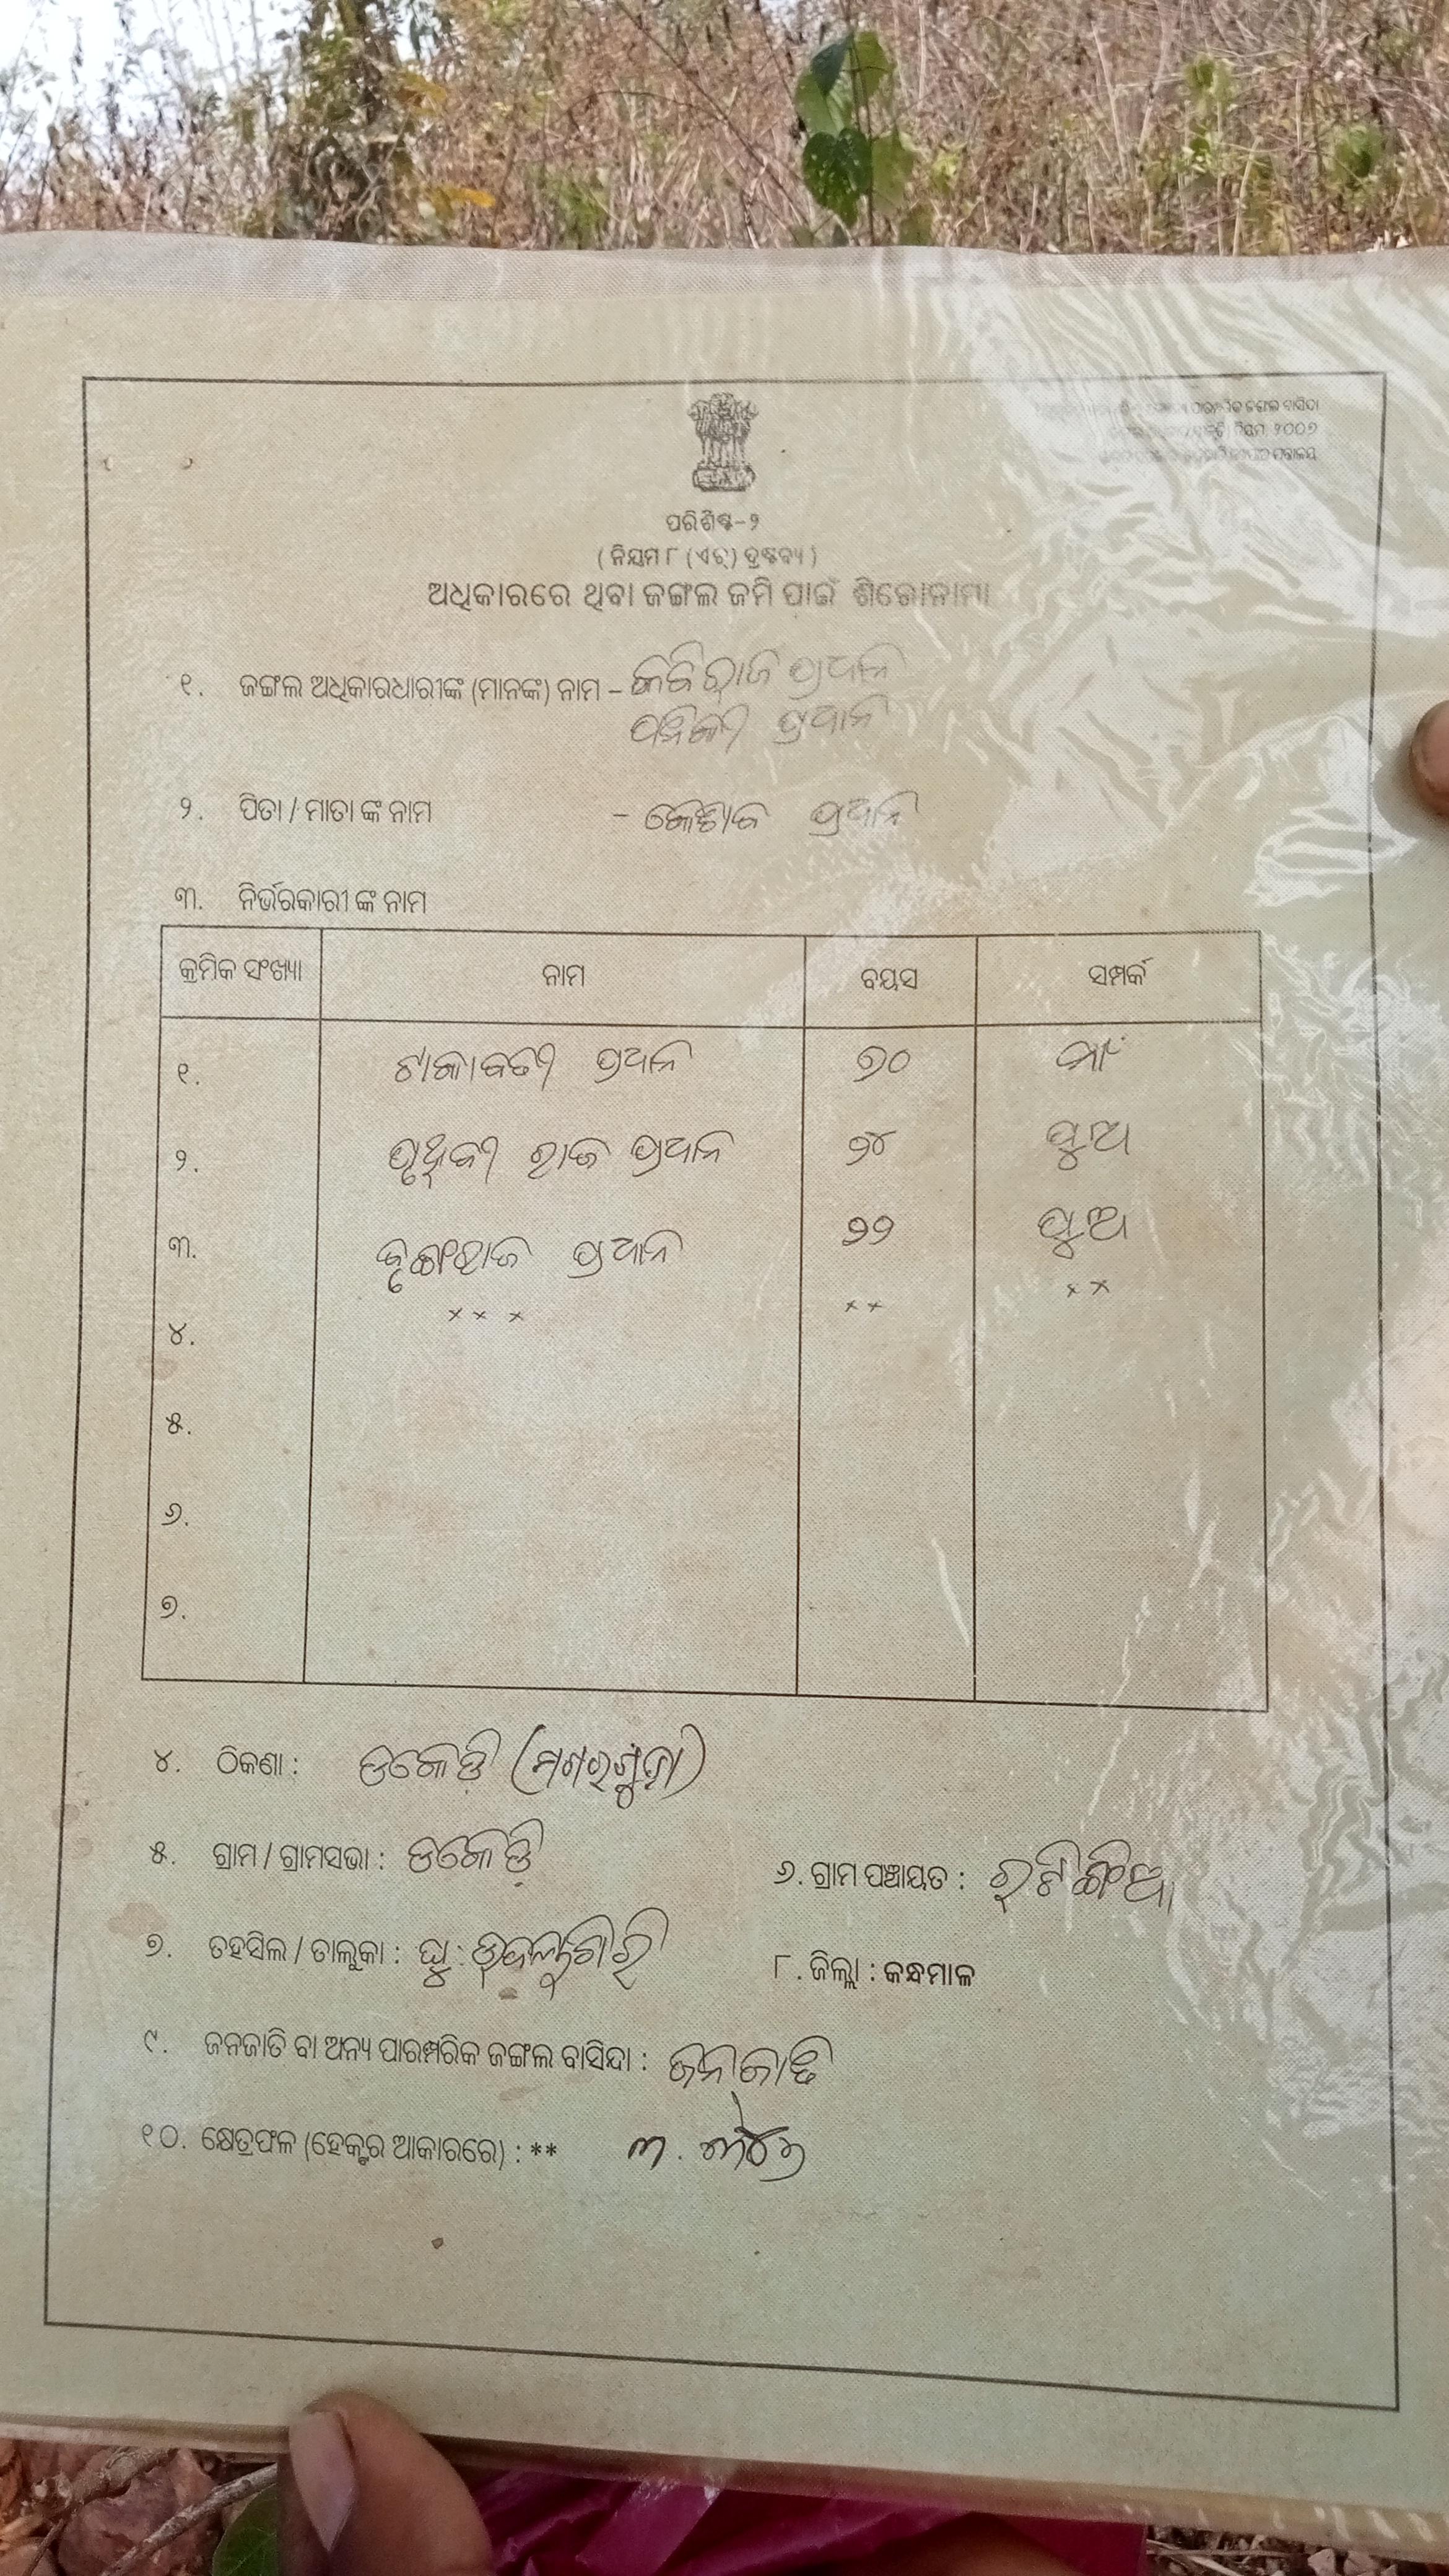 ପାରମ୍ପରିକ ଜଙ୍ଗଲ ବାସିନ୍ଦା
ନିୟମ, ୨୦୦୭
ପରିଶିଷ୍ଟ-୨
( ନିୟମ ୮ (ଏଚ୍) ଦ୍ରଷ୍ଟବ୍ୟ )
ଅଧିକାରରେ ଥିବା ଜଙ୍ଗଲ ଜମି ପାଇଁ ଶିରୋନାମା
୧. ଜଙ୍ଗଲ ଅଧିକାରଧାରୀଙ୍କ (ମାନଙ୍କ) ନାମ – କବିରାଜ ପ୍ରଧାନ
ପ୍ରଧାନ
୨. ପିତା / ମାତା ଙ୍କ ନାମ – ପ୍ରଧାନ
୩. ନିର୍ଭରକାରୀ ଙ୍କ ନାମ
କ୍ରମିକ ସଂଖ୍ୟା ନାମ ବୟସ ସମ୍ପର୍କ
୧. ଟାଙ୍କାବତୀ ପ୍ରଧାନ ୭୦ ମାଁ
୨. ପୃଥିବୀ ରାଜ ପ୍ରଧାନ ୨୪ ପୁଅ
୩. ପ୍ରଧାନ ୨୨ ପୁଅ
୪. × × × × × × ×
୫.
୬.
୭.
୪. ଠିକଣା : ଡକେଡି
୫. ଗ୍ରାମ / ଗ୍ରାମସଭା : ଡକେଡି ୬. ଗ୍ରାମ ପଞ୍ଚାୟତ : ରଟିଙ୍ଗିଆ
୭. ତହସିଲ / ତାଲୁକା : ଘୁ: ଉଦୟଗିରି ୮. ଜିଲ୍ଲା : କନ୍ଧମାଳ
୯. ଜନଜାତି ବା ଅନ୍ୟ ପାରମ୍ପରିକ ଜଙ୍ଗଲ ବାସିନ୍ଦା : ଜନଜାତି
୧୦. କ୍ଷେତ୍ରଫଳ (ହେକ୍ଟର ଆକାରରେ) : **